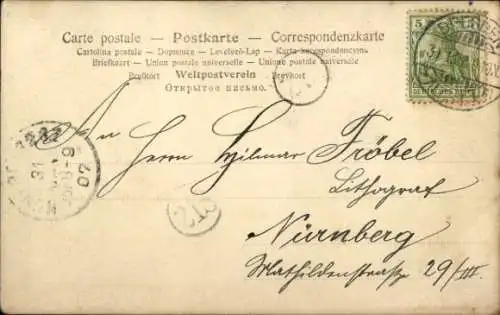 Carte postale — Postkarte — Correspondenzkarte
Cartolina postale — Dopisnice — Levelező-Lap — Karta korespondencyjna
Briefkaart — Union postale universelle — Unione postale universale
Brefkort Weltpostverein Brevkort
Открытое письмо.
5 5
DEUTSCHES REICH
An
Herrn Hilmar Fröbel
Lithograf
Nürnberg
Mathildenstraße 29/III.
31
8-9
02